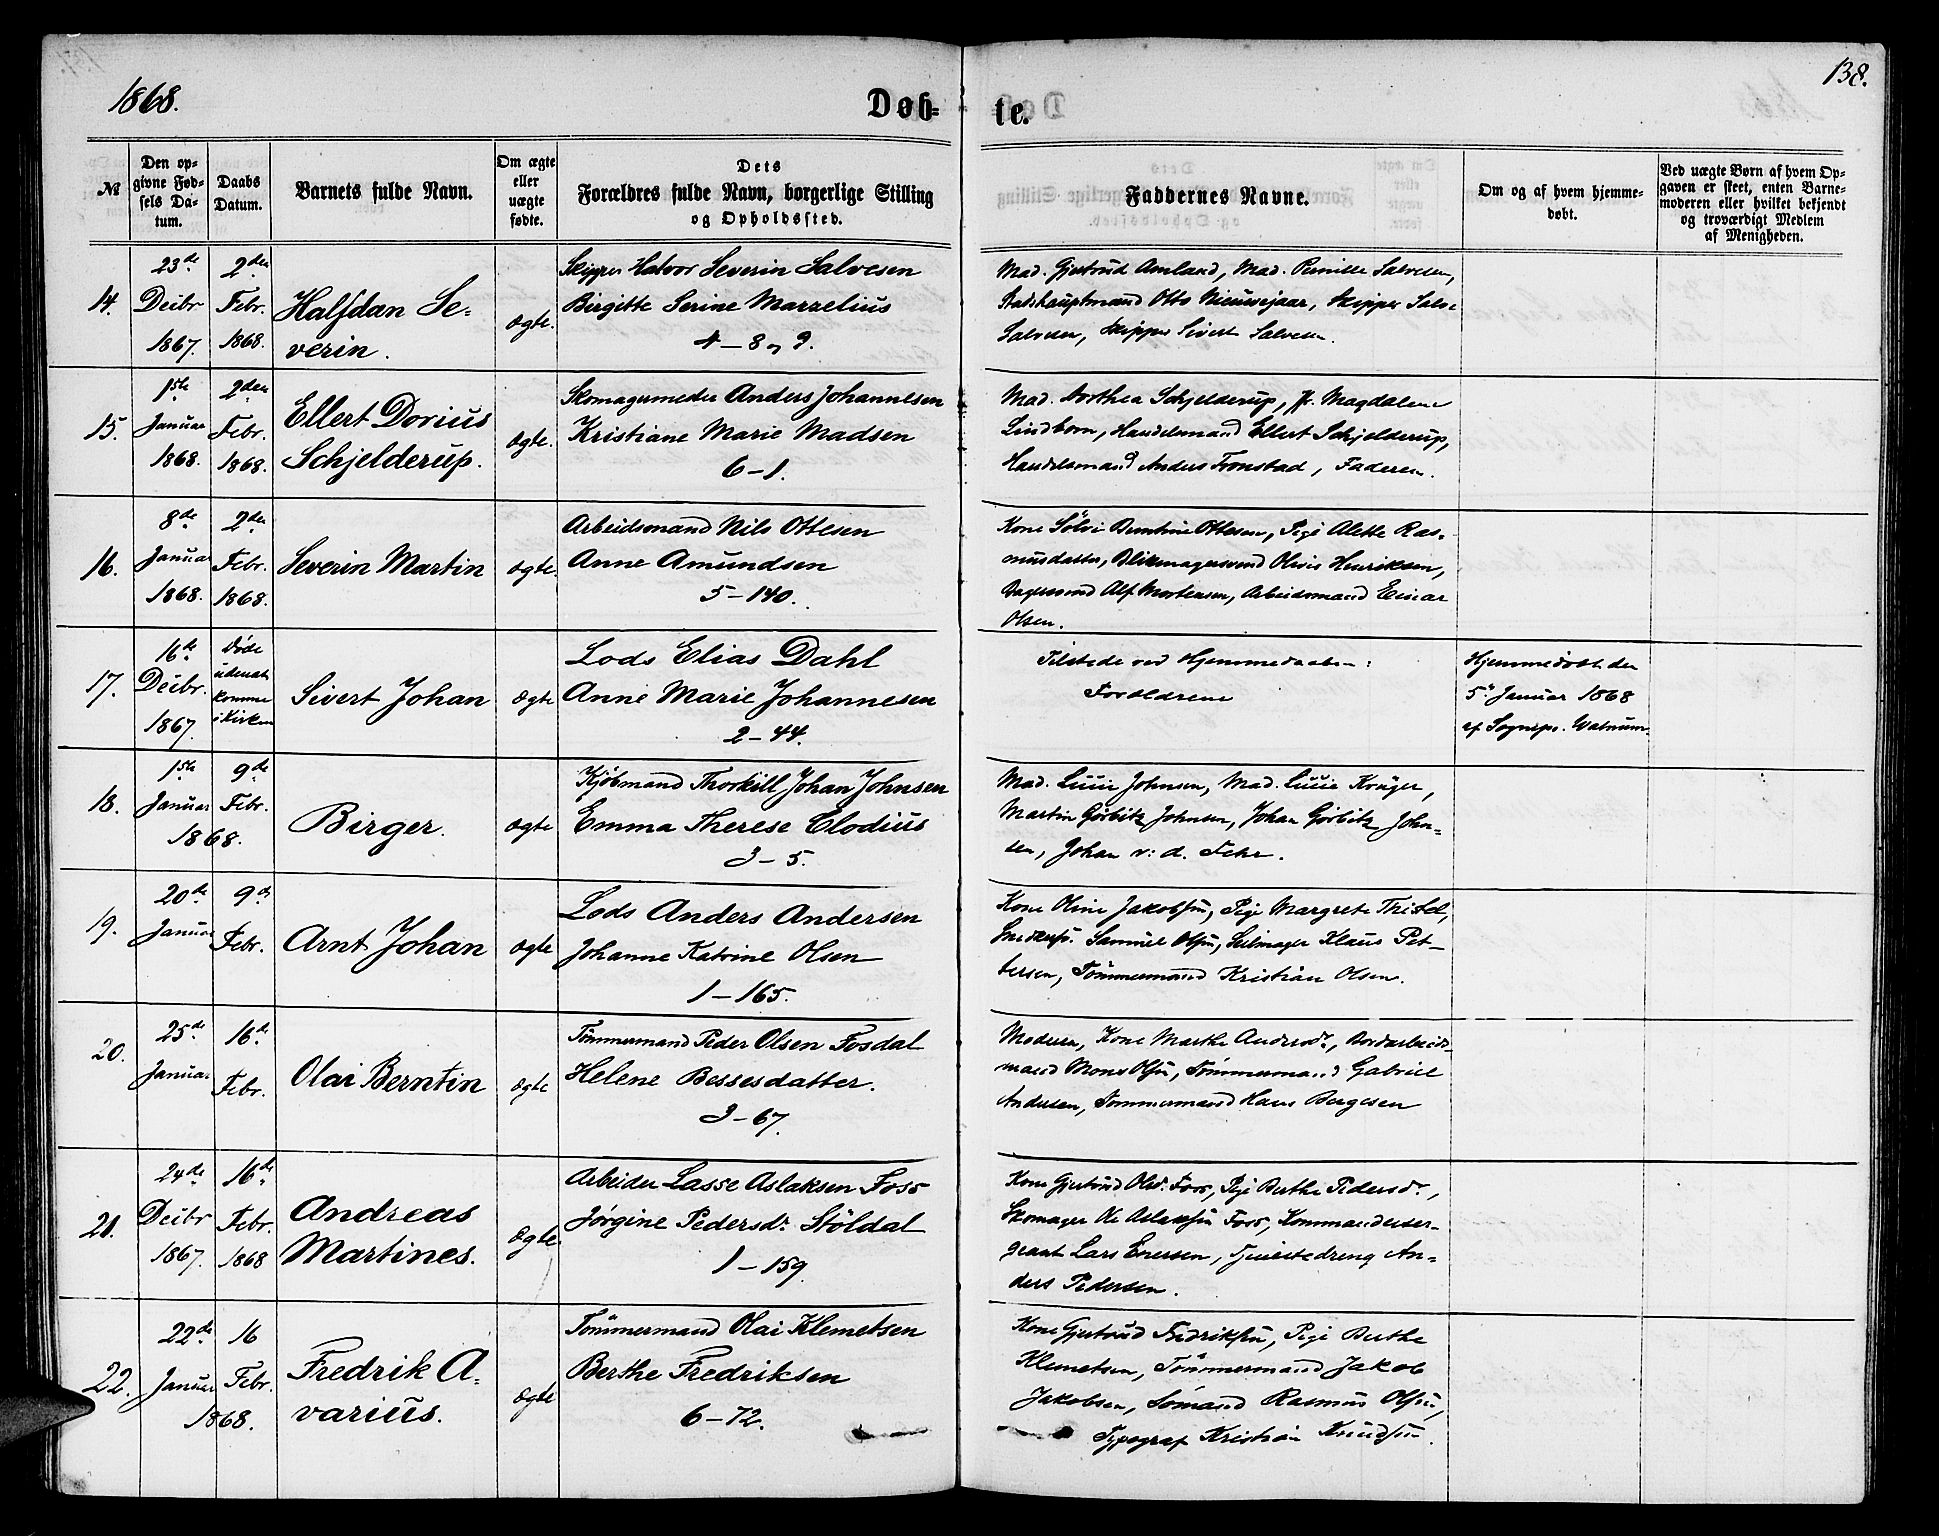 1868.
Døb-
te.
138.
№
Den op-
givne Fød-
sels Da-
tum.
Daabs
Datum.
Barnets fulde Navn.
Om ægte
eller
uægte
fødte.
Dets
Forældres fulde Navn, borgerlige Stilling
og Opholdssted.
Faddernes Navne.
Om og af hvem hjemme-
døbt.
Ved uægte Børn af hvem Op-
gaven er skeet, enten Barne-
moderen eller hvilket bekjendt
og troværdigt Medlem
af Menigheden.
14.
23de
Decbr
1867.
2den
Febr.
1868.
Halfdan Se-
verin.
ægte.
Skipper Halvor Severin Salvesen
Birgitte Serine Marzelius
4-8 og 9.
Mad. Gjertrud Amland, Mad. Pernille Salvesen,
Stadshauptmand Otto Nieuwejaar, Skipper Salve
Salvesen, Skipper Sivert Salvesen.
15.
1ste
Januar
1868.
2den
Febr.
1868.
Ellert Dorius
Schjelderup.
ægte.
Skomagermester Anders Johannesen
Kristiane Marie Madsen
6-1.
Mad. Dorthea Schjelderup, Fr. Magdalene
Lindborn, Handelsmand Ellert Schjelderup,
Handelsmand Anders Tronstad, Faderen.
16.
8de
Januar
1868.
2den
Febr.
1868.
Severin Martin
ægte.
Arbeidsmand Nils Ottesen
Anne Amundsen
5-140.
Kone Sølvi Berntine Ottesen, Pige Alette Ras-
musdatter, Blikmagersvend Olvis Henriksen,
Bagersvend Alf Mortensen, Arbeidsmand Einar
Olsen.
17.
16de
Decbr.
1867.
Døde
udenat
komme
i Kirken
Sivert Johan
ægte
Lods Elias Dahl
Anne Marie Johannesen
2-44.
Tilstede ved Hjemmedaaben:
Forældrene
Hjemmedøbt den
5te Januar 1868
af Sognepr. Walnum.
18.
1ste
Januar
1868.
9de
Febr.
Birger.
ægte
Kjøbmand Thorkill Johan Johnsen
Emma Therese Clodius
3-5.
Mad. Lucie Johnsen, Mad. Lucie Krüger,
Martin Görbitz Johnsen, Johan Görbitz John-
sen, Johan v: d. Fehr.
19.
20de
Januar
9de
Febr.
Arnt Johan
ægte
Lods Anders Andersen
Johanne Katrine Olsen
1-165.
Kone Oline Jakobsen, Pige Margrete Thistel,
Samuel Olsen, Seilmager Klaus Pet-
tersen, Tømmermand Kristian Olsen.
20.
25de
Januar
16de
Febr.
Olai Berntin
ægte
Tømmermand Peder Olsen Fosdal
Helene Bessesdatter.
3-67.
Moderen, Kone Marthe Andersdr., Bordarbeids-
mand Mons Olsen, Tømmermand Gabriel
Andersen, Tømmermand Hans Bergesen
21.
24de
Decbr
1867.
16de
Febr.
1868
Andreas
Martines.
ægte.
Arbeider Lasse Aslaksen Foss
Jørgine Pedersdr. Stöldal
1-159.
Kone Gjertrud Olsdr. Foss, Pige Berthe Pedersdr.,
Skomager Ole Aslaksen Foss, Kommandeerser-
geant Lars Enersen, Tjenestedreng An-
ders Pedersen.
22.
22de
Januar
1868.
16
Febr.
Fredrik A-
varius.
ægte
Tømmermand Olai Klemetsen
Berthe Fredriksen
6-72.
Kone Gjertrud Fredriksen, Pige Berthe
Klemetsen, Tømmermand Jakob
Jakobsen, Sømand Rasmus Olsen,
Typograf Kristian Knudsen.